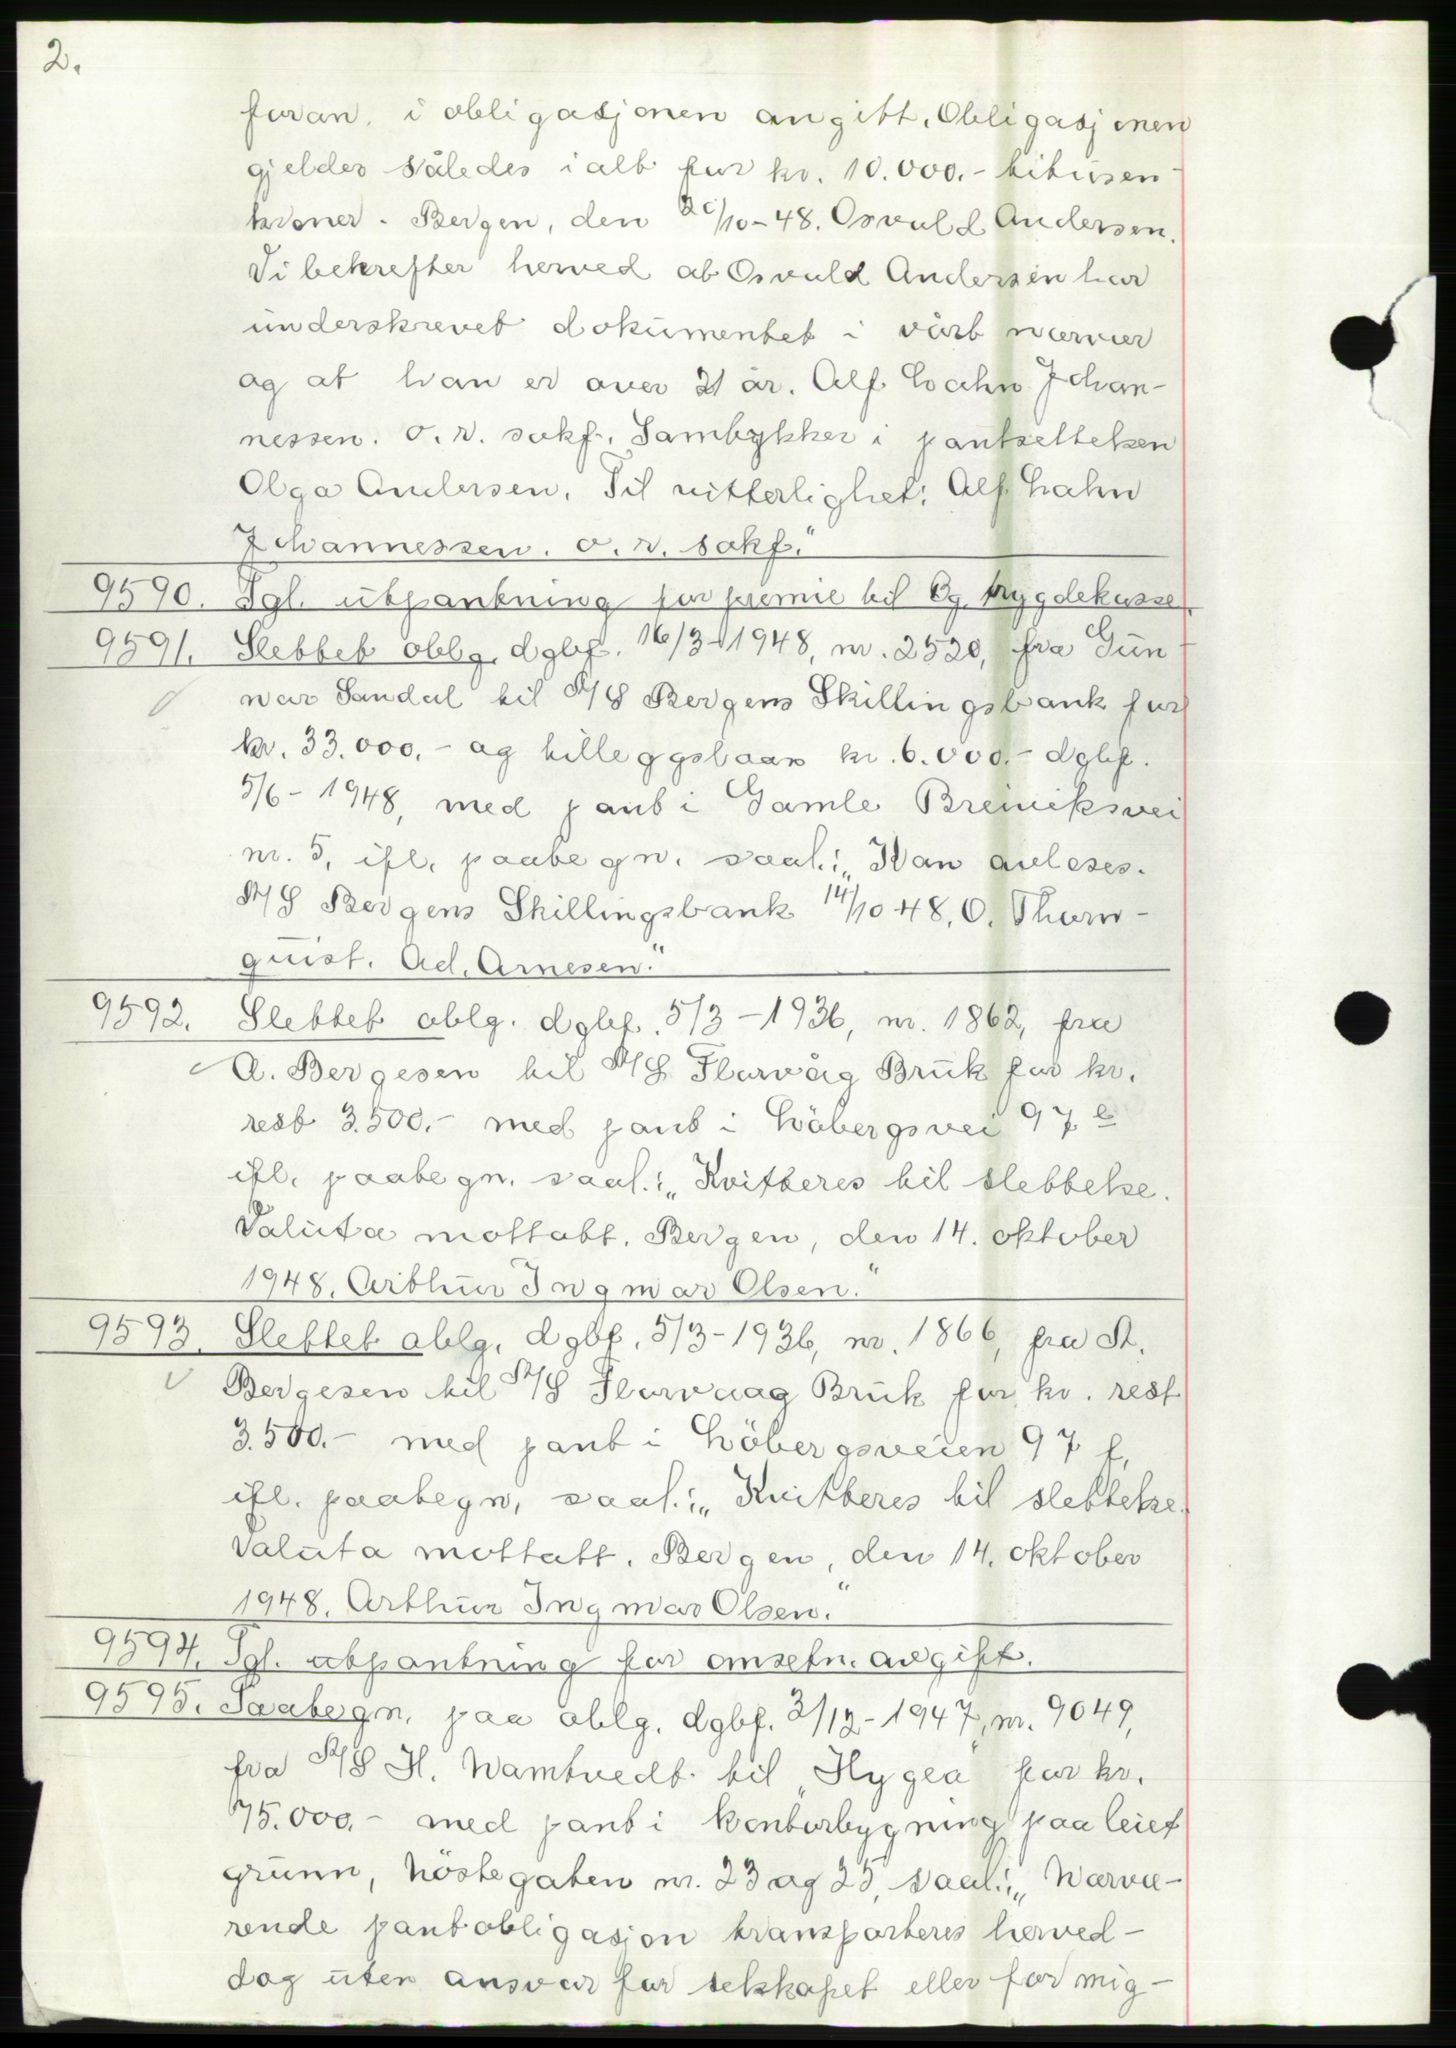 2.
foran i obligasjonen angitt. Obligasjonen
gjelder således ialt for kr. 10.000.- titusen
kroner. Bergen, den /10-48. Osvald Andersen.
Vi bekrefter herved at Osvald Andersen har
underskrevet dokumentet i vårt nærvær
og at han er over 21 år. Alf Johan-
nessen. o.r. sakf. Samtykker i pantsettelsen
Olga Andersen. Til vitterlighet: Alf
Johannessen. o.r. sakf."
9590. Tgl. utpantning for premie til Bg. trygdekasse.
9591. Slettet oblg. dgbf. 16/3-1948, nr. 2520, fra Gun-
nar Sandal til A/S Bergens Skillingsbank for
kr. 33.000.- og tilleggslaan kr. 6.000.- dgbf.
5/6-1948, med pant i Gamle Breiviksvei
nr. 5, ifl. paategn. saal.: „Kan avleses.
A/S Bergens Skillingsbank 14/10 48. O. Thorn-
quist. Ad. Arnesen."
9592. Slettet oblg. dgbf. 5/3-1936, nr. 1862, fra
A. Bergesen til A/S Florvåg Bruk for kr.
rest 3.500.- med pant i Løbergsvei 97 e
ifl. paategn. saal.: „Kvitteres til slettelse.
Valuta mottatt. Bergen, den 14. oktober
1948. Arthur Ingmar Olsen."
9593. Slettet oblg. dgbf. 5/3-1936, nr. 1866, fra A.
Bergesen til A/S Florvaag Bruk for kr. rest
3.500.- med pant i Löbergsveien 97 f,
ifl. paategn. saal.: „Kvitteres til slettelse.
Valuta mottatt. Bergen, den 14. oktober
1948. Arthur Ingmar Olsen."
9594. Tgl. utpantning for omsetn. avgift.
9595. Paategn. paa oblg. dgbf. 2/12-1947, nr. 9049,
fra A/S H. Namtvedt til „Hygea" for kr.
75.000.- med pant i kontorbygning paa leiet
grunn, Nöstegaten nr. 23 og 25, saal.: „Nærvæ-
rende pantobligasjon transporteres herved-
dog uten ansvar for selskapet eller for mig-